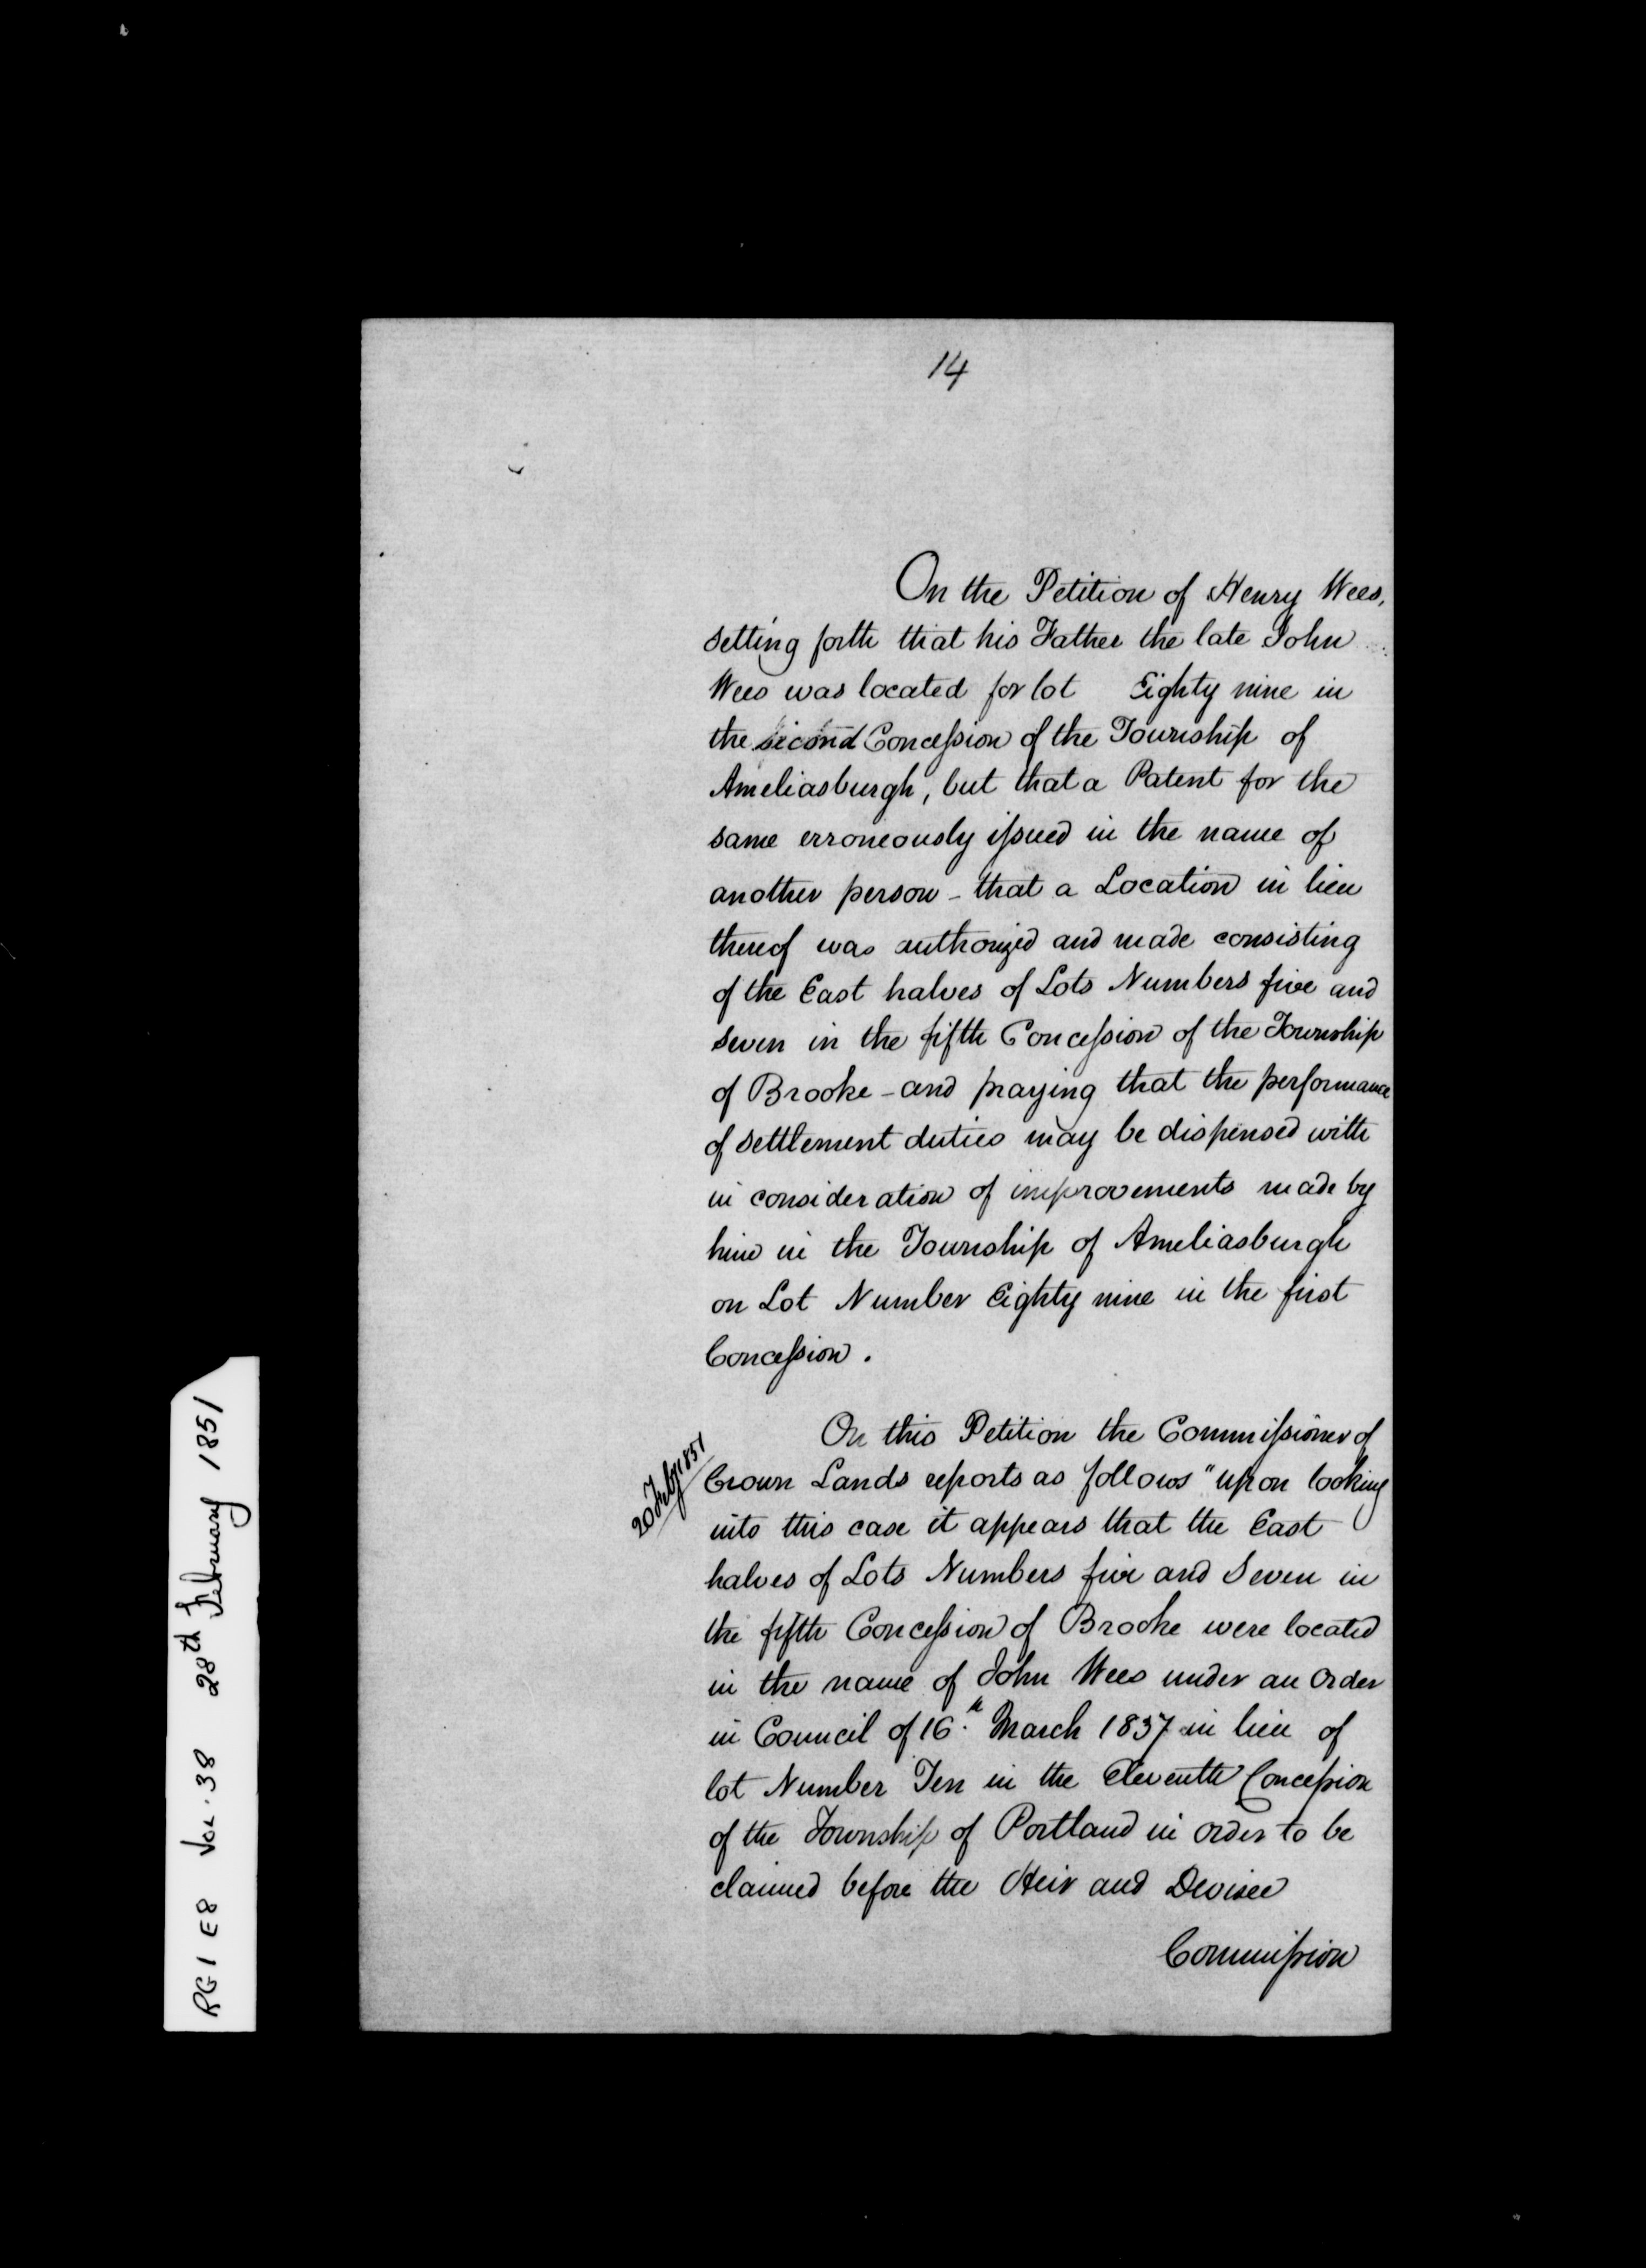 14
On the Petition of Henry Wees,
setting forth that his Father the late John
Wees was located for lot Eighty nine in
the second Concession of the Township of
Ameliasburgh, but that a Patent for the
same erroneously issued in the name of
another person - that a Location in lieu
thereof was authorized and made consisting
of the East halves of Lots Numbers five and
seven in the fifth Concession of the Township
of Brooke - and praying that the performance
of settlement duties may be dispensed with
in consideration of improvements made by
him in the Township of Ameliasburgh
on Lot Number Eighty nine in the first
Concession.
20 Feby 1851
On this Petition the Commissioner of
Crown Lands reports as follows "upon looking
into this case it appears that the East
halves of Lots Numbers five and Seven in
the fifth Concession of Brooke were located
in the name of John Wees under an Order
in Council of 16th March 1837 in lieu of
lot Number Ten in the Eleventh Concession
of the Township of Portland in order to be
claimed before the Heir and Devisee
Commission
RG 1 E8 Vol. 38 28th February 1851